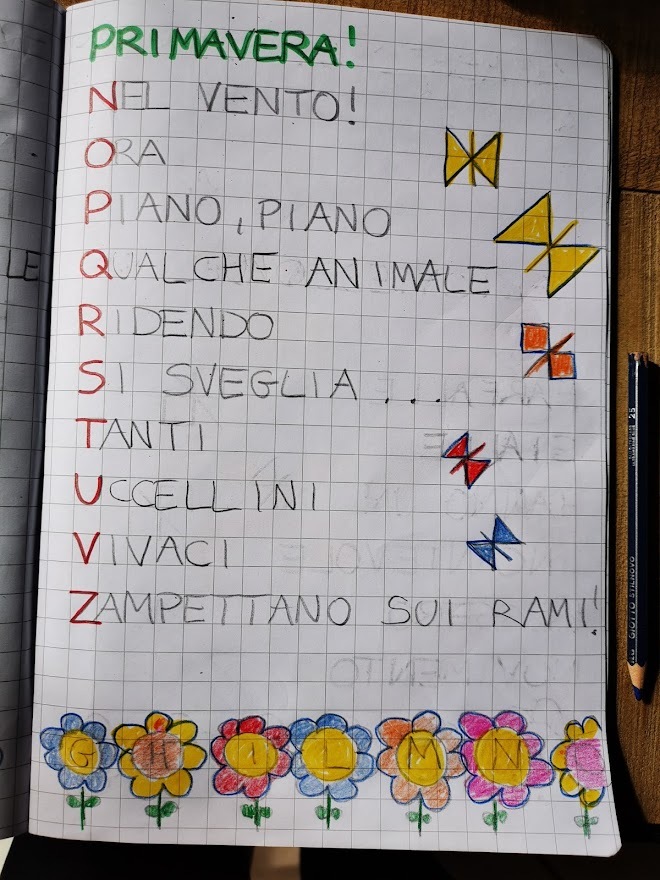 PRIMAVERA!
NEL VENTO!
ORA
PIANO, PIANO
QUALCHE ANIMALE
RIDENDO
SI SVEGLIA ...
TANTI
UCCELLINI
VIVACI
ZAMPETTANO SUI RAMI!
LE
G H I L M N
GIOTTO STILNOVO